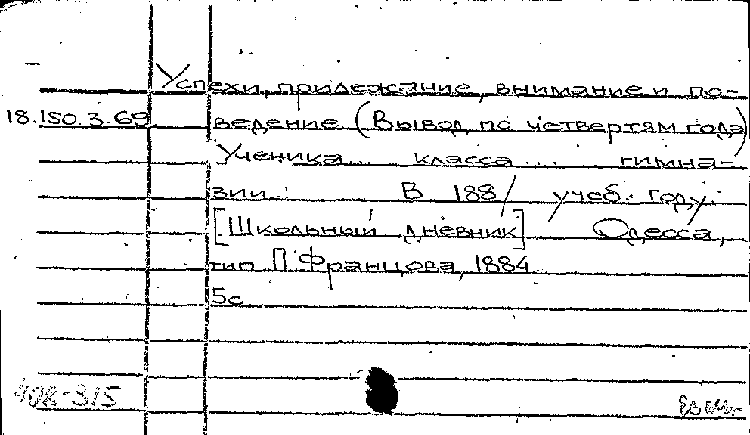 Успехи, прилежание, внимание и по-
18.150.3.69 ведение (Вывод по четвертям года)
Ученика ... класса ... гимна-
зии. В 188/ учеб. году.
[Школьный дневник] Одесса,
тип П. Францова, 1884
5с